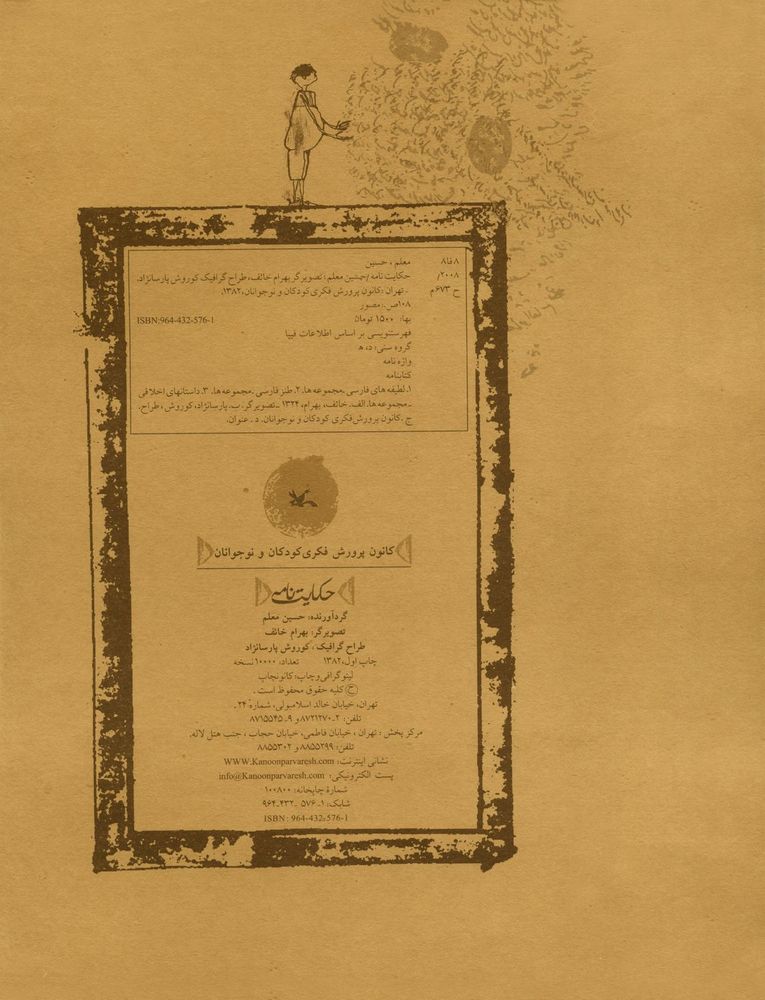 ۸فا۸
معلم، حسین
۲۰۰۸/
ح ۶۷۳م
حکایت نامه /حسین معلم؛ تصویرگر بهرام خائف، طراح گرافیک کوروش پارسانژاد.
- تهران :کانون پرورش فکری کودکان و نوجوانان، ۱۳۸۲.
۱۰۸ص.:مصور
بها: ۱۵۰۰ تومان ISBN:964-432-576-1
فهرستنویسی بر اساس اطلاعات فیپا
گروه سنی: د، ه
واژه نامه
کتابنامه
۱. لطیفه های فارسی ـ مجموعه ها. ۲. طنز فارسی ـ مجموعه ها. ۳. داستانهای اخلاقی
ـ مجموعه ها. الف. خائف، بهرام، ۱۳۲۴ ـ تصویرگر. ب. پارسانژاد، کوروش، طراح.
ج. کانون پرورش فکری کودکان و نوجوانان. د. عنوان.
کانون پرورش فکری کودکان و نوجوانان
حکایت نامه
گردآورنده: حسین معلم
تصویرگر: بهرام خائف
طراح گرافیک: کوروش پارسانژاد
چاپ اول: ۱۳۸۲ تعداد: ۱۰۰۰۰ نسخه
لیتوگرافی و چاپ: کانون چاپ
ح کلیه حقوق محفوظ است.
تهران، خیابان خالد اسلامبولی، شماره ۲۴.
تلفن: ۲-۸۷۲۱۲۷۰ و ۹-۸۷۱۵۵۴۵
مرکز پخش: تهران، خیابان فاطمی، خیابان حجاب، جنب هتل لاله.
تلفن: ۸۸۵۵۲۹۹ و ۸۸۵۵۳۰۲
نشانی اینترنت: WWW.Kanoonparvaresh.com
پست الکترونیکی: info@Kanoonparvaresh.com
شمارهٔ چاپخانه: ۱۰۰۸۰۰
شابک: ۱-۵۷۶-۴۳۲-۹۶۴
ISBN: 964-432-576-1